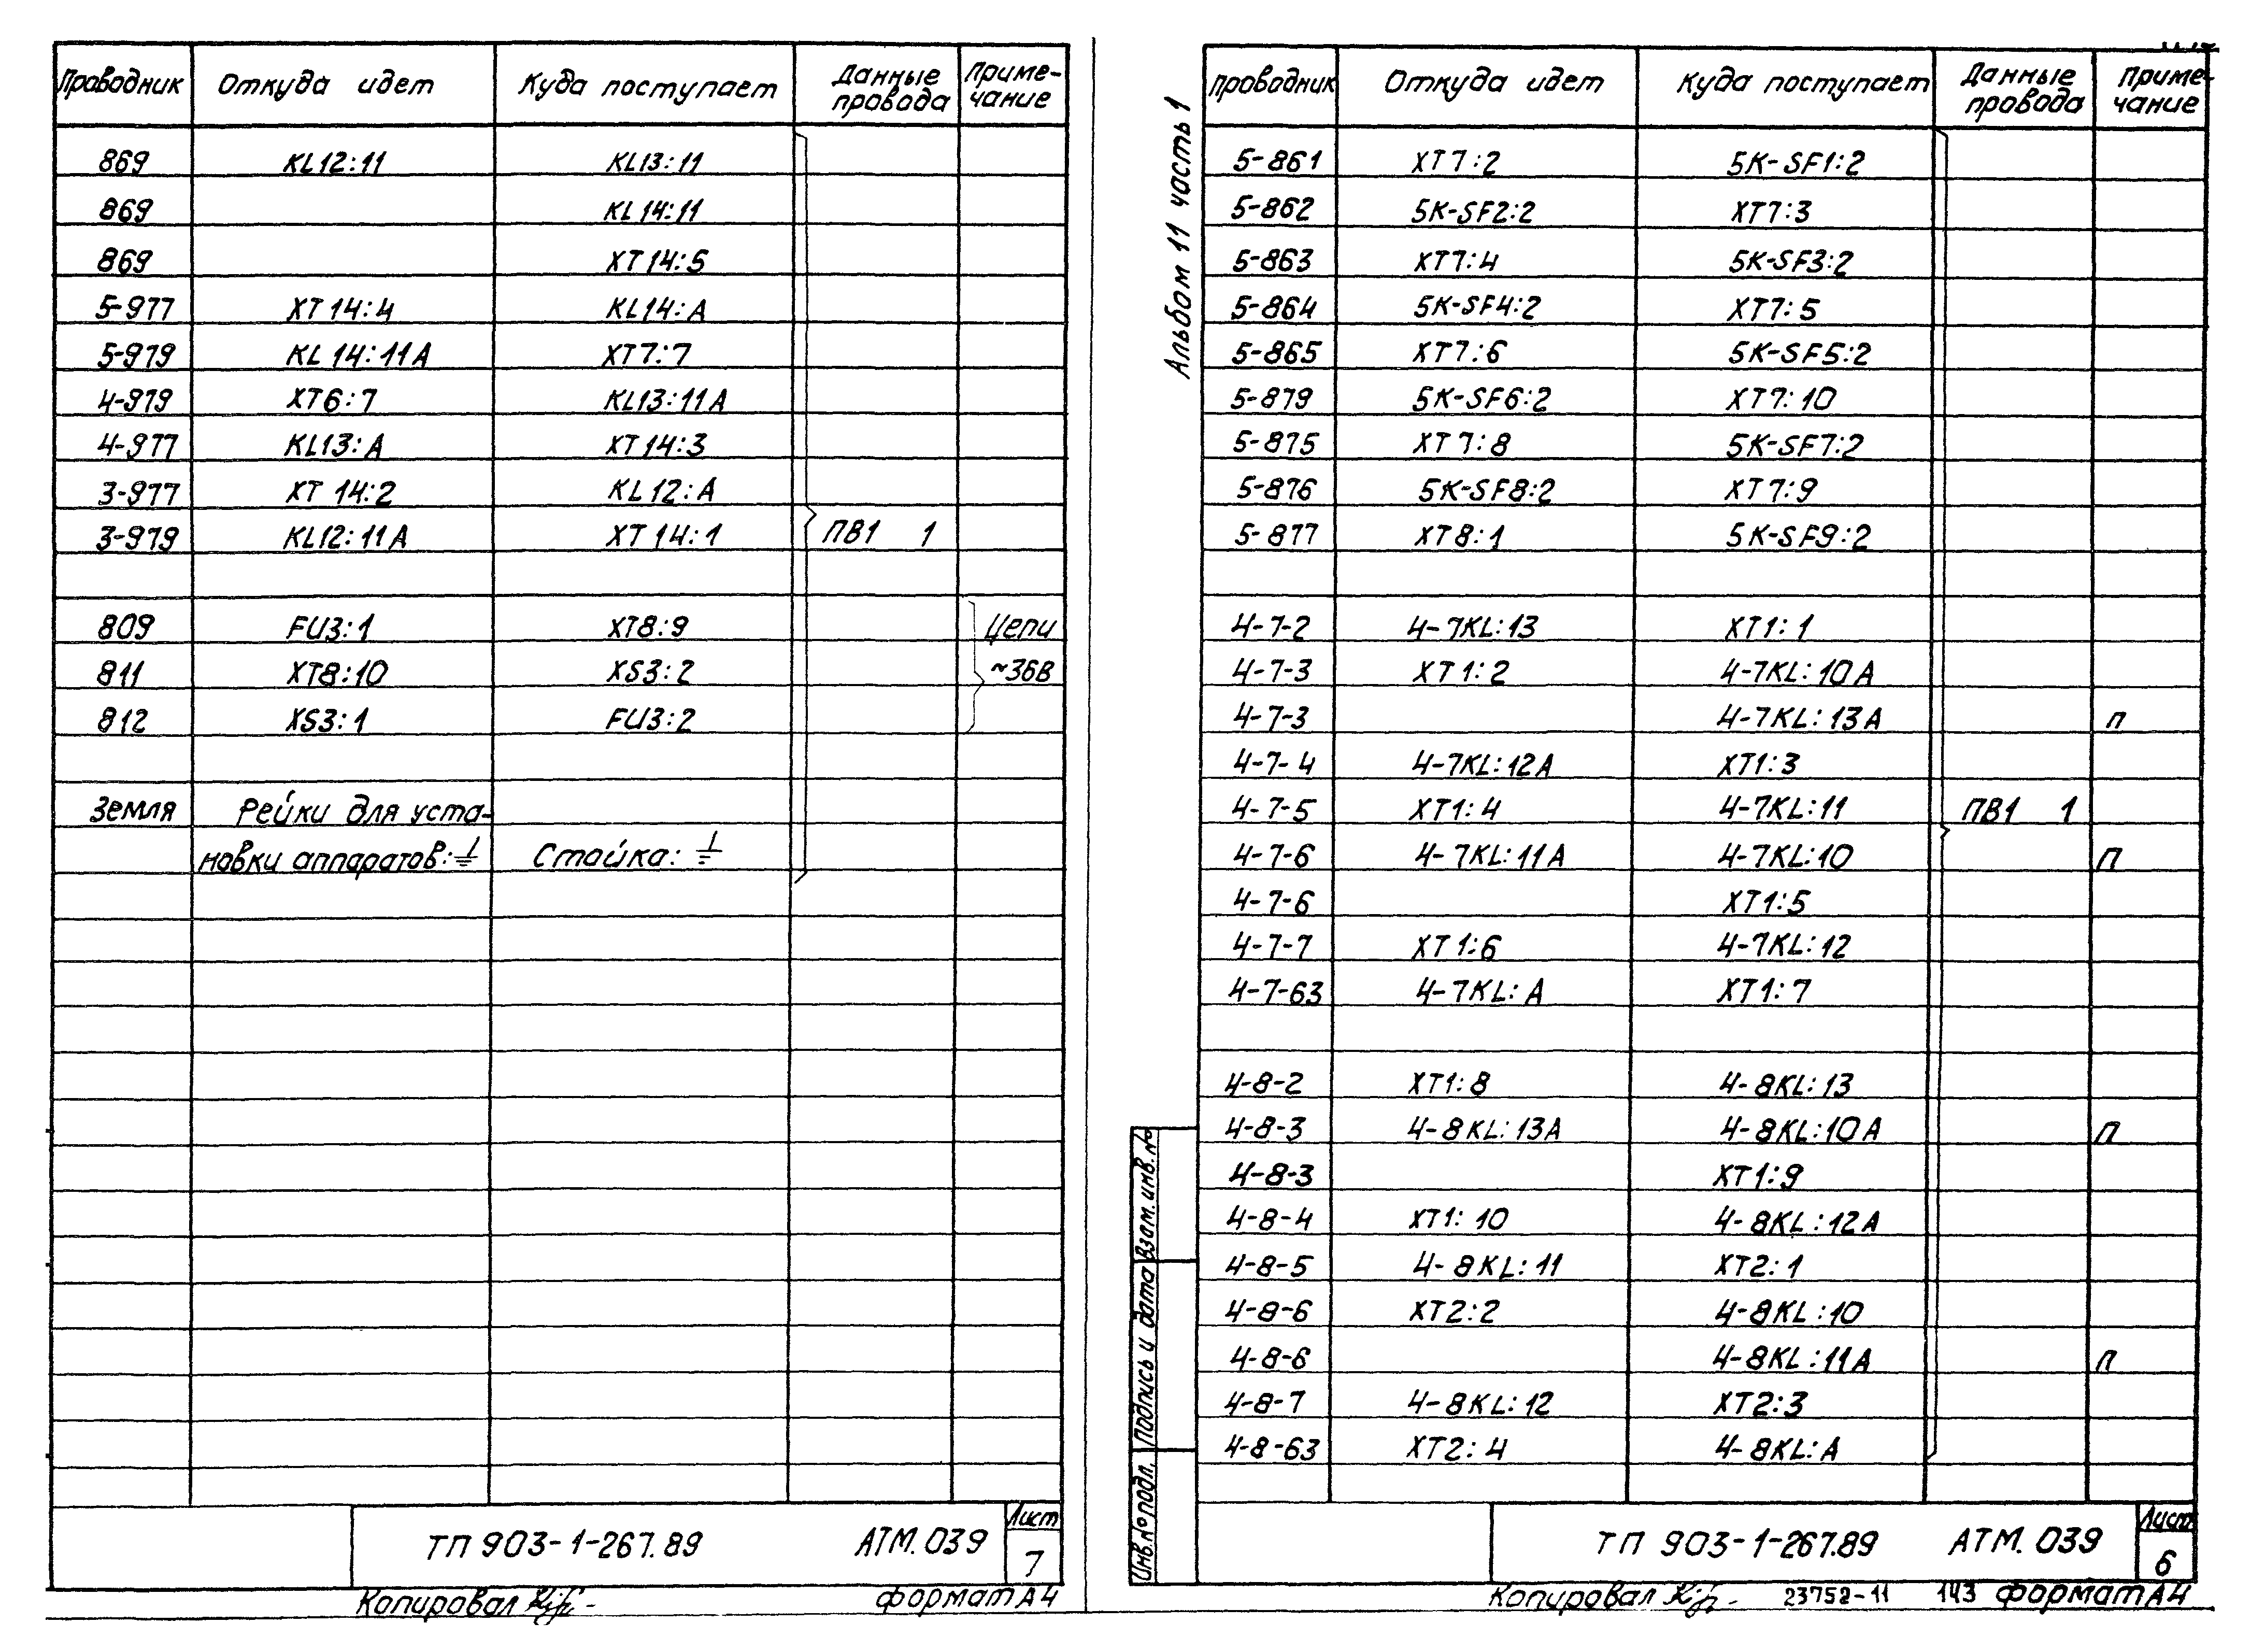 Проводник Откуда идет Куда поступает Данные провода Приме-чание
869 KL12:11 KL13:11
869 KL14:11
869 XT14:5
5-977 XT14:4 KL14:A
5-979 KL14:11A XT7:7
4-979 XT6:7 KL13:11A
4-977 KL13:A XT14:3
3-977 XT14:2 KL12:A
3-979 KL12:11A XT14:1 ПВ1 1
809 FU3:1 XT8:9 Цепи
811 XT8:10 XS3:2 ~36В
812 XS3:1 FU3:2
Земля Рейки для уста-
новки аппаратов:⏚ Стойка:⏚
ТП 903-1-267.89 АТМ.039 Лист 7
Копировал
формат А4
Альбом 11 часть 1
Проводник Откуда идет Куда поступает Данные провода Приме-чание
5-861 XT7:2 5K-SF1:2
5-862 5K-SF2:2 XT7:3
5-863 XT7:4 5K-SF3:2
5-864 5K-SF4:2 XT7:5
5-865 XT7:6 5K-SF5:2
5-879 5K-SF6:2 XT7:10
5-875 XT7:8 5K-SF7:2
5-876 5K-SF8:2 XT7:9
5-877 XT8:1 5K-SF9:2
4-7-2 4-7KL:13 XT1:1
4-7-3 XT1:2 4-7KL:10A
4-7-3 4-7KL:13A п
4-7-4 4-7KL:12A XT1:3
4-7-5 XT1:4 4-7KL:11 ПВ1 1
4-7-6 4-7KL:11A 4-7KL:10 П
4-7-6 XT1:5
4-7-7 XT1:6 4-7KL:12
4-7-63 4-7KL:A XT1:7
4-8-2 XT1:8 4-8KL:13
4-8-3 4-8KL:13A 4-8KL:10A П
4-8-3 XT1:9
4-8-4 XT1:10 4-8KL:12A
4-8-5 4-8KL:11 XT2:1
4-8-6 XT2:2 4-8KL:10
4-8-6 4-8KL:11A П
4-8-7 4-8KL:12 XT2:3
4-8-63 XT2:4 4-8KL:A
Взам. инв. №
Подпись и дата
Инв. № подл.
ТП 903-1-267.89 АТМ.039 Лист 6
Копировал
23752-11 143 формат А4